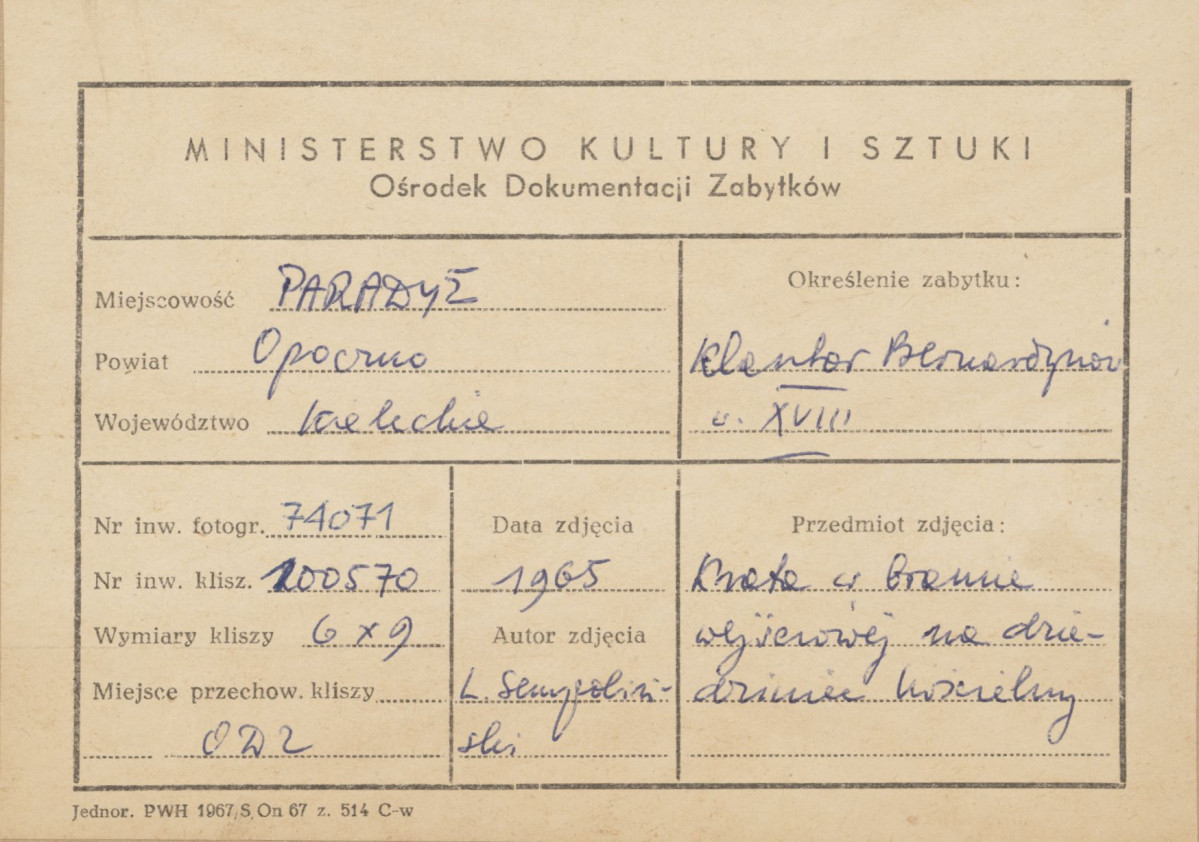 MINISTERSTWO KULTURY I SZTUKI
Ośrodek Dokumentacji Zabytków
Miejscowość PARADYŻ
Powiat Opoczno
Województwo kieleckie
Określenie zabytku:
Klasztor Bernardynów
w. XVIII
Nr inw. fotogr. 74071
Nr inw. klisz. 100570
Wymiary kliszy 6 x 9
Miejsce przechow. kliszy
ODZ
Data zdjęcia
1965
Autor zdjęcia
L. Sempoliń-
ski
Przedmiot zdjęcia:
Krata w bramie
wejściowej na dzie-
dziniec kościelny
Jednor. PWH 1967/S, On 67 z. 514 C-w